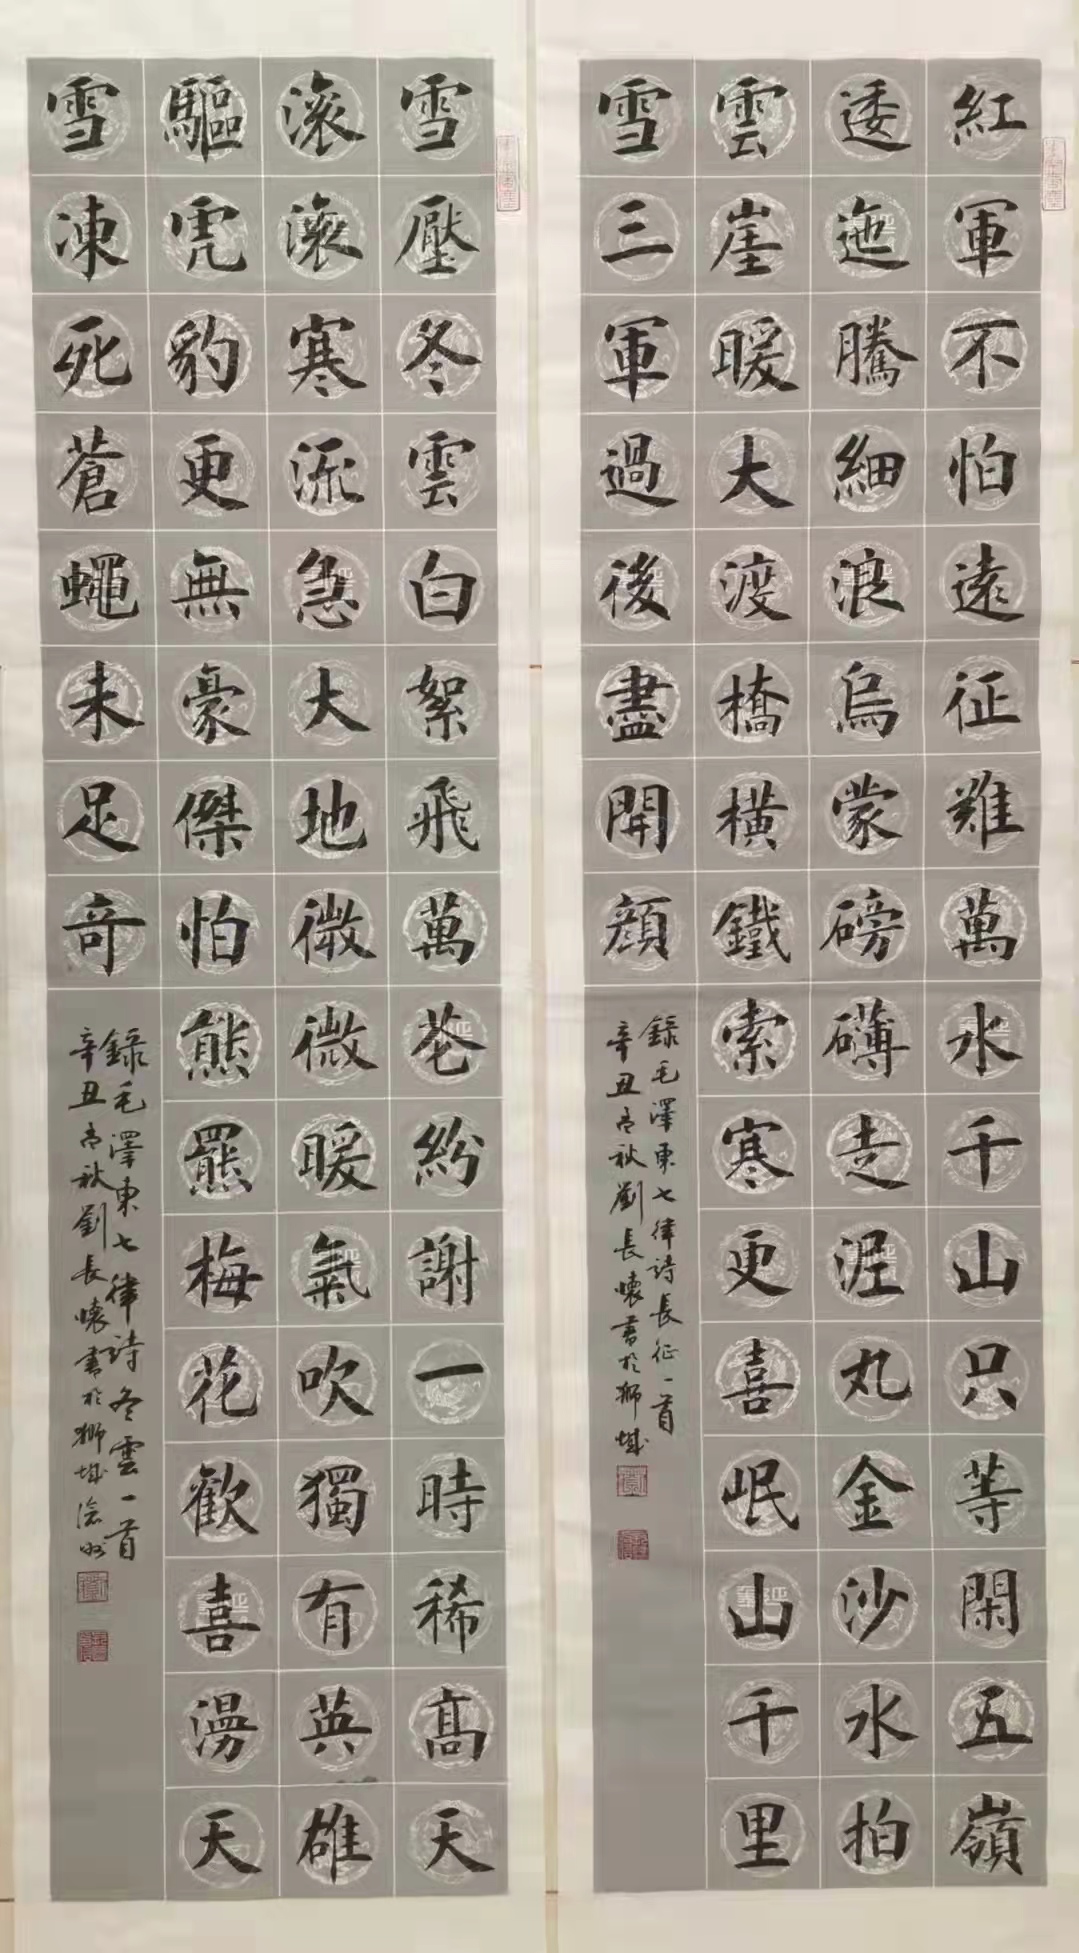 紅軍不怕遠征難萬水千山只等閑五嶺
逶迤騰細浪烏蒙磅礴走泥丸金沙水拍
雲崖暖大渡橋橫鐵索寒更喜岷山千里
雪三軍過後盡開顏
錄毛澤東七律詩長征一首
辛丑高秋劉長懷書於獅城
雪壓冬雲白絮飛萬芲紛謝一時稀髙天
滾滾寒流急大地微微暖氣吹獨有英雄
驅虎豹更無豪傑怕熊羆梅花歡喜漫天
雪凍死蒼蠅未足奇
錄毛澤東七律詩冬雲一首
辛丑高秋劉長懷書於獅城滄州